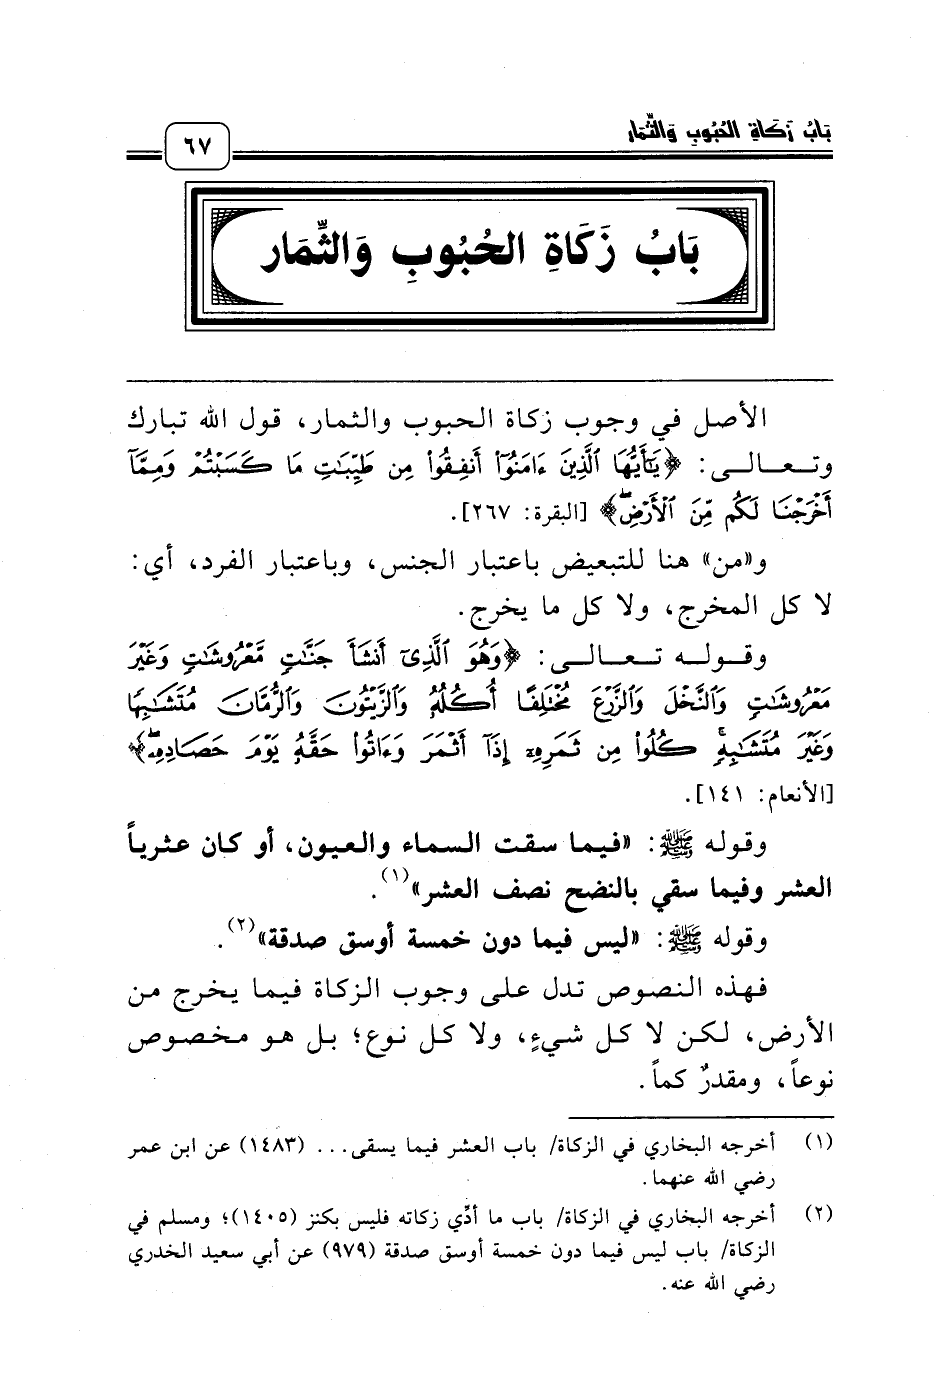 بَابُ زَكَاةِ الحُبُوبِ وَالثِّمَارِ
٦٧
بَابُ زَكَاةِ الحُبُوبِ وَالثِّمَار
الأصل في وجوب زكاة الحبوب والثمار، قول الله تبارك
وتـعـالـى: ﴿يَـٰٓأَيُّهَا ٱلَّذِينَ ءَامَنُوٓا۟ أَنفِقُوا۟ مِن طَيِّبَـٰتِ مَا كَسَبْتُمْ وَمِمَّآ
أَخْرَجْنَا لَكُم مِّنَ ٱلْأَرْضِ ۖ﴾ [البقرة: ٢٦٧].
و«من» هنا للتبعيض باعتبار الجنس، وباعتبار الفرد، أي:
لا كل المخرج، ولا كل ما يخرج.
وقـولـه تـعـالـى: ﴿وَهُوَ ٱلَّذِىٓ أَنشَأَ جَنَّـٰتٍ مَّعْرُوشَـٰتٍ وَغَيْرَ
مَعْرُوشَـٰتٍ وَٱلنَّخْلَ وَٱلزَّرْعَ مُخْتَلِفًا أُكُلُهُۥ وَٱلزَّيْتُونَ وَٱلرُّمَّانَ مُتَشَـٰبِهًا
وَغَيْرَ مُتَشَـٰبِهٍ ۚ كُلُوا۟ مِن ثَمَرِهِۦٓ إِذَآ أَثْمَرَ وَءَاتُوا۟ حَقَّهُۥ يَوْمَ حَصَادِهِۦ ۖ﴾
[الأنعام: ١٤١].
وقوله ﷺ: «فيما سقت السماء والعيون، أو كان عثرياً
العشر وفيما سقي بالنضح نصف العشر»(١).
وقوله ﷺ: «ليس فيما دون خمسة أوسق صدقة»(٢).
فهذه النصوص تدل على وجوب الزكاة فيما يخرج من
الأرض، لكن لا كل شيءٍ، ولا كل نوع؛ بل هو مخصوص
نوعاً، ومقدرٌ كماً.
(١) أخرجه البخاري في الزكاة/ باب العشر فيما يسقى... (١٤٨٣) عن ابن عمر
رضي الله عنهما.
(٢) أخرجه البخاري في الزكاة/ باب ما أدِّي زكاته فليس بكنز (١٤٠٥)؛ ومسلم في
الزكاة/ باب ليس فيما دون خمسة أوسق صدقة (٩٧٩) عن أبي سعيد الخدري
رضي الله عنه.